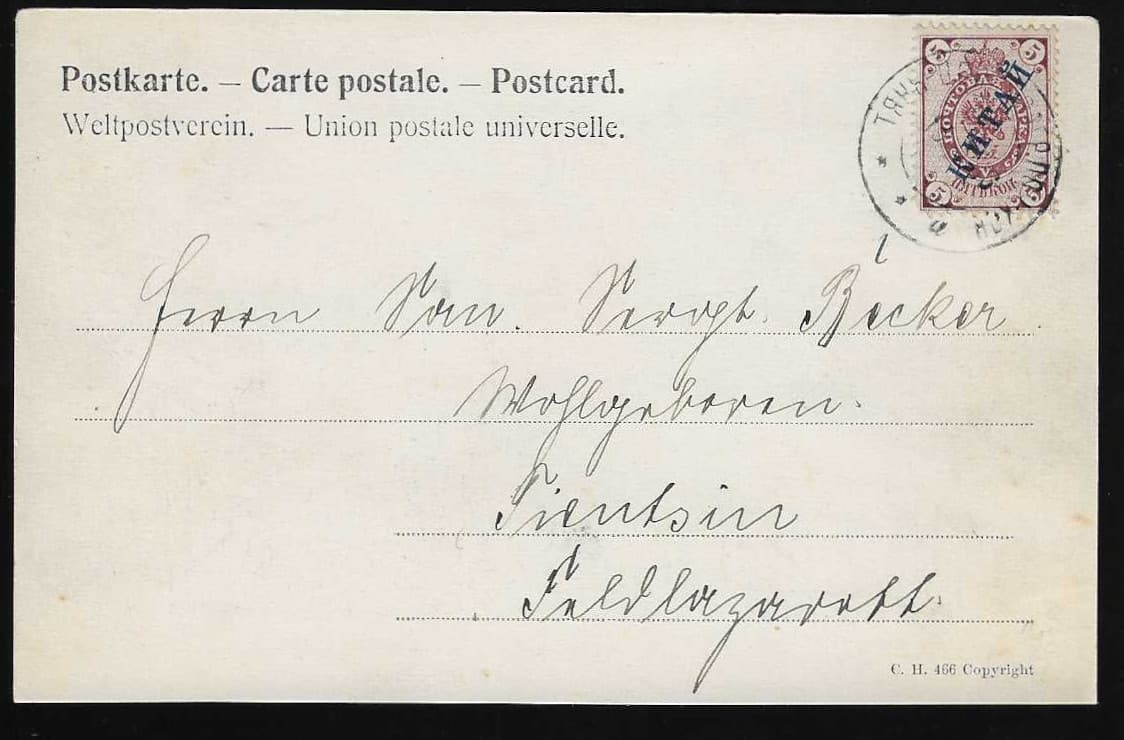 Postkarte. – Carte postale. – Postcard.
Weltpostverein. — Union postale universelle.
5 5
ПОЧТОВАЯ МАРКА
КИТАЙ
ПЯТЬ КОП.
5 5
Herrn San. Sergt. Becker
Wohlgeboren.
Tientsin
Feldlazarett.
C. H. 466 Copyright